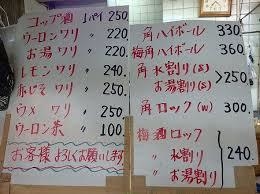 コップ酒 1パイ 250
ウーロンワリ 〃 220
お湯ワリ 〃 220
レモンワリ 〃 240.
赤じそワリ 〃 250
ウメワリ 〃 250
ウーロン茶 〃 100.
お客様よろしくお願いします
角ハイボール 330.
梅角ハイボール 360.
角水割り(S)
〃お湯割り(S) >250
角ロック(W) 300.
梅酒ロック
〃 水割り 240.
〃 お湯割り